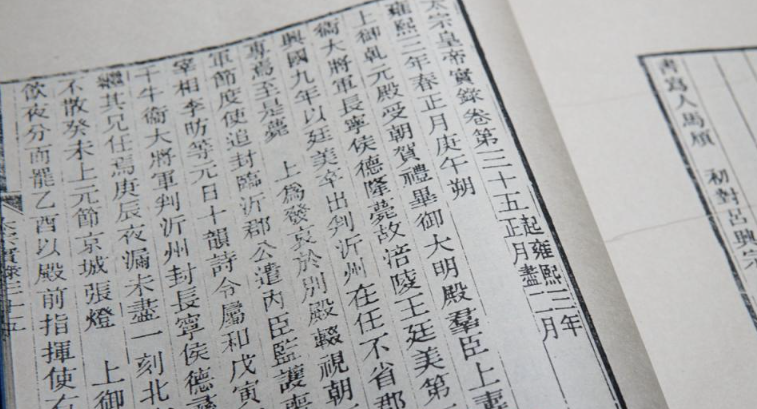 書寫人馬 初對呂興宗
太宗皇帝實錄卷第三十五 起雍熙三年
正月盡二月
雍熙三年春正月庚午朔
上御乾元殿受朝賀禮畢御大明殿羣臣上壽
衞大將軍長寧侯德隆薨故涪陵王廷美第
興國九年以廷美卒出判沂州在任不省郡
專焉至是薨 上為發哀於別殿輟視朝
軍節度使追封臨沂郡公遣內臣監護喪
宰相李昉等元日十韻詩令屬和戊寅
千牛衞大將軍判沂州封長寧侯德彞
繼其兄任焉庚辰夜漏未盡一刻北
不散癸未上元節京城張燈 上御
飲夜分而罷乙酉以殿前指揮使右
實錄三十五